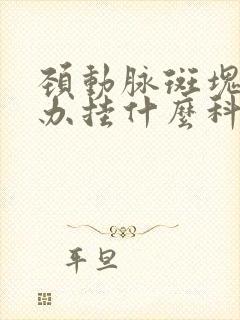 頚動脉斑塊
办挂什麼科
平旦